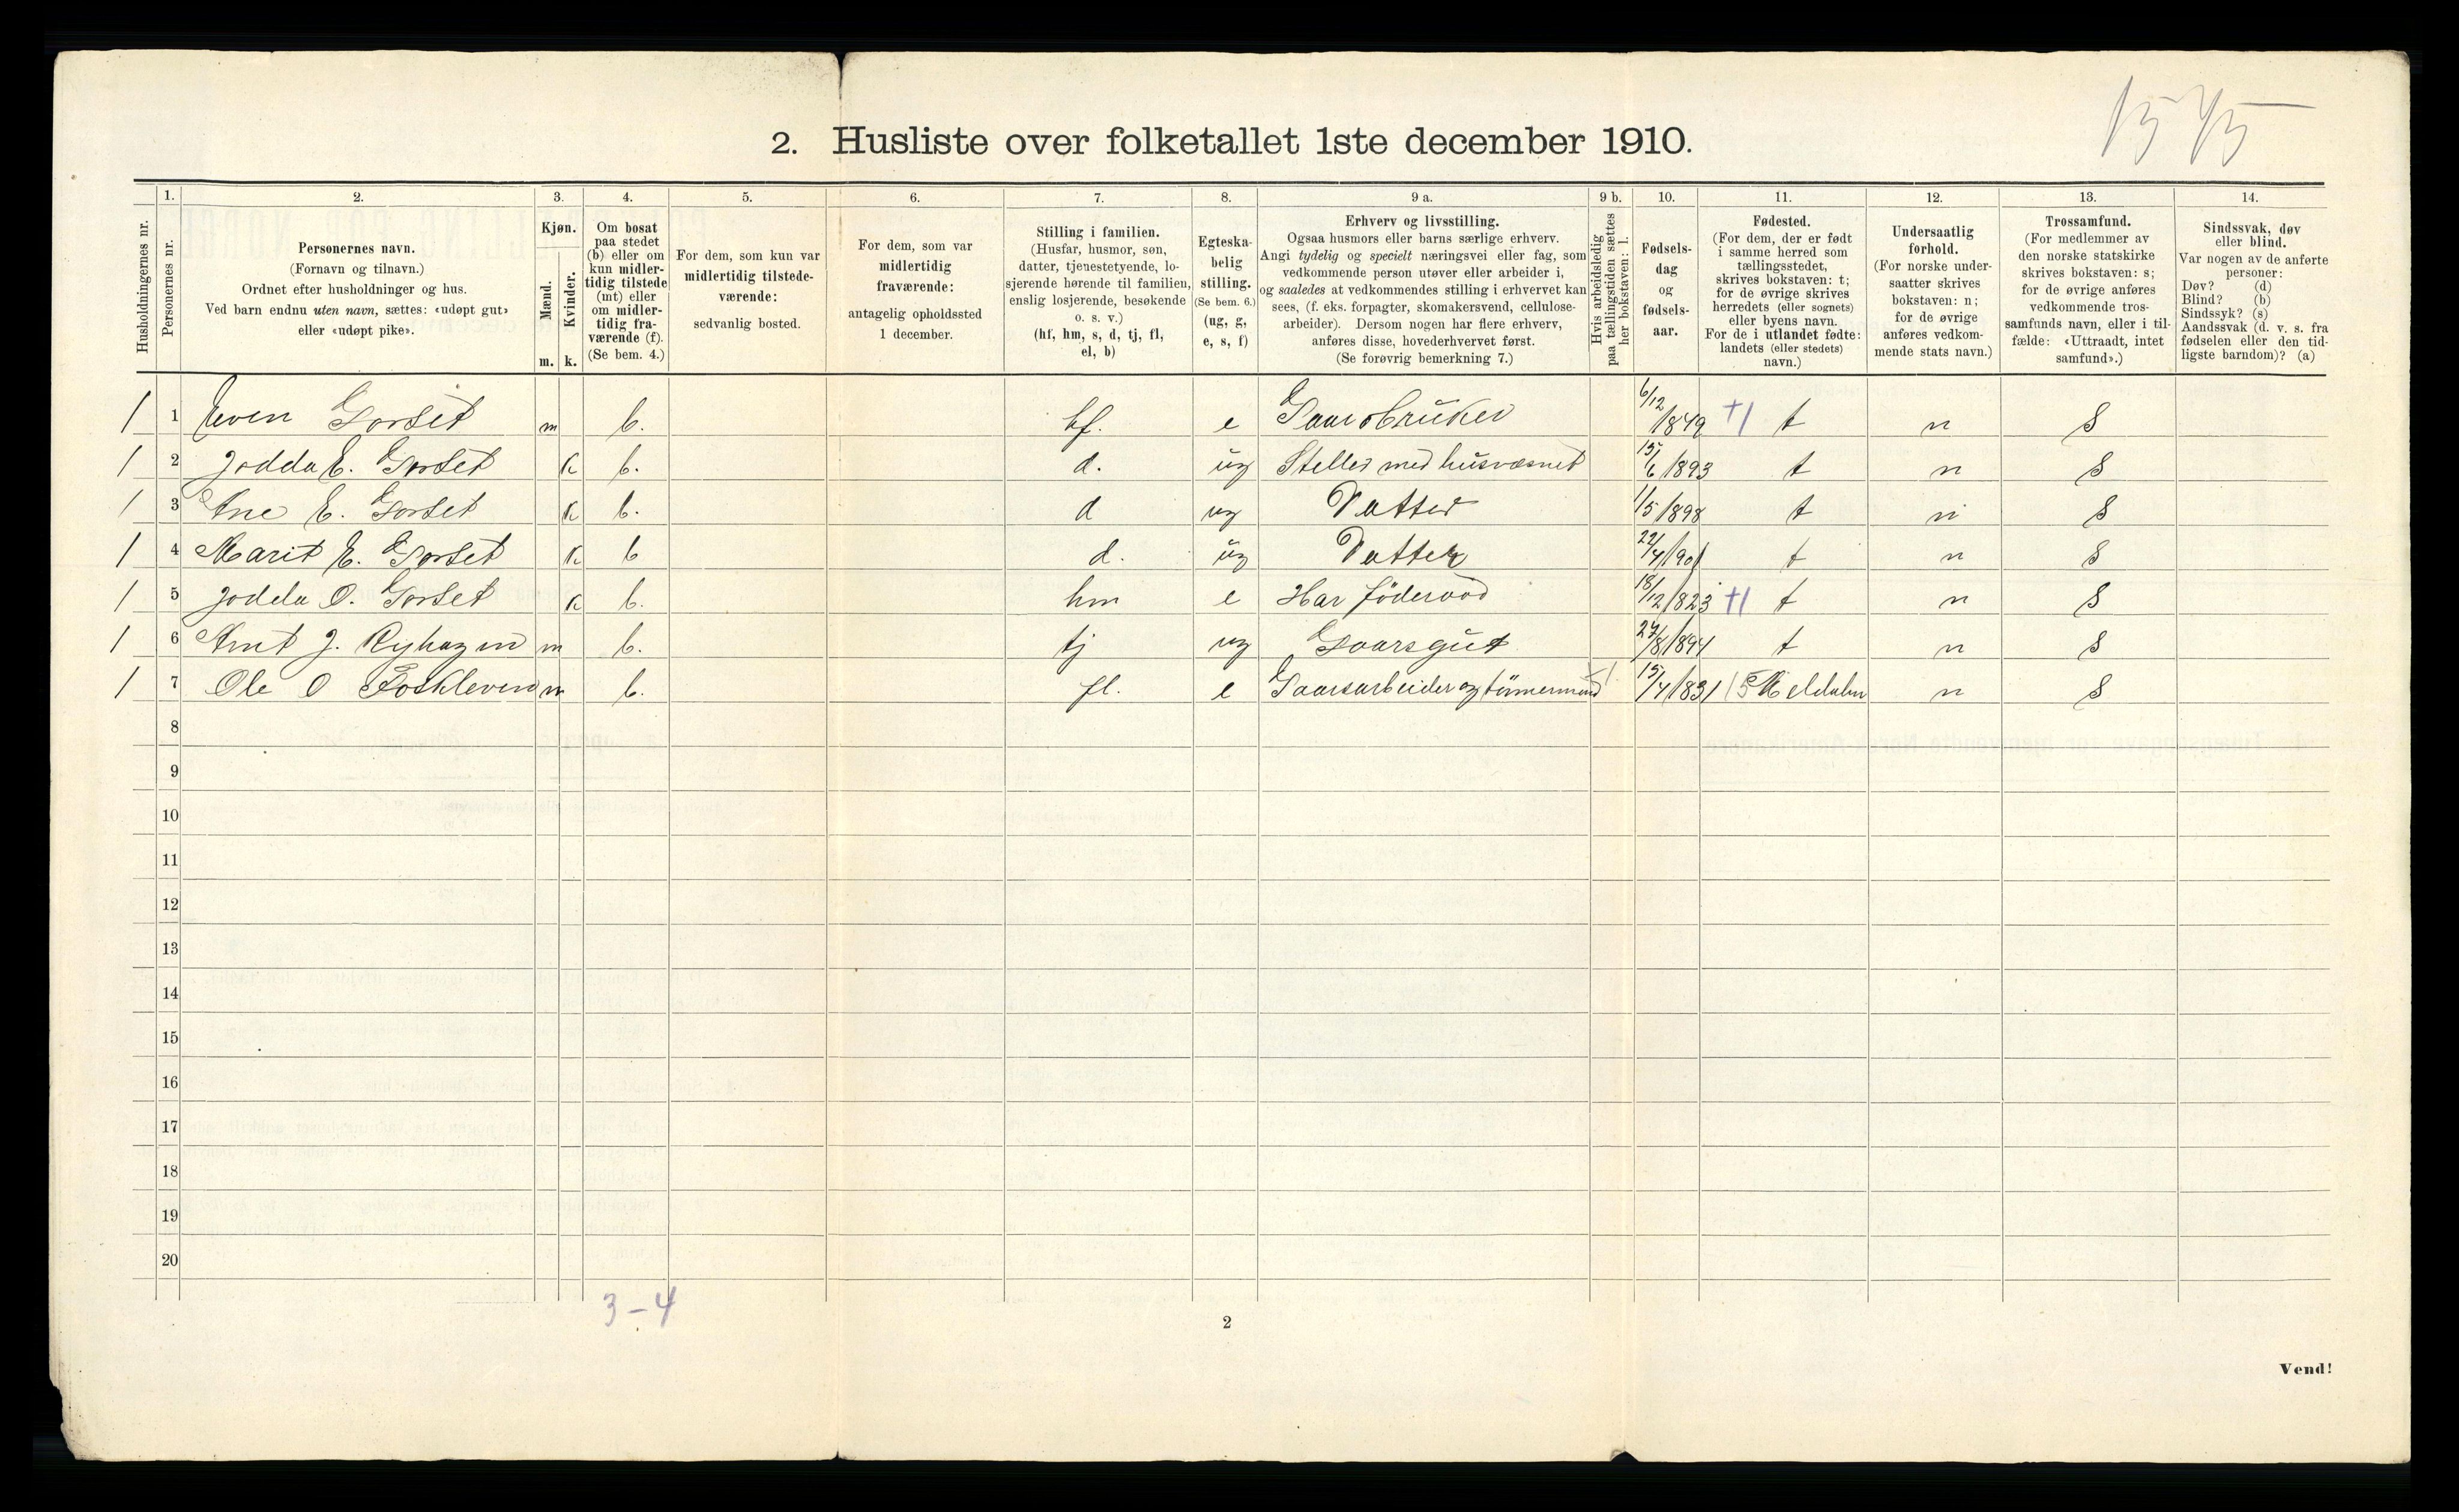 1545
2. Husliste over folketallet 1ste december 1910.
Husholdningernes nr.
1. Personernes nr.
2. Personernes navn.
(Fornavn og tilnavn.)
Ordnet efter husholdninger og hus.
Ved barn endnu uten navn, sættes: «udøpt gut»
eller «udøpt pike».
3. Kjøn.
Mænd. m.
Kvinder. k.
4. Om bosat
paa stedet
(b) eller om
kun midler-
tidig tilstede
(mt) eller
om midler-
tidig fra-
værende (f).
(Se bem. 4.)
5. For dem, som kun var
midlertidig tilstede-
værende:
sedvanlig bosted.
6. For dem, som var
midlertidig
fraværende:
antagelig opholdssted
1 december.
7. Stilling i familien.
(Husfar, husmor, søn,
datter, tjenestetyende, lo-
sjerende hørende til familien,
enslig losjerende, besøkende
o. s. v.)
(hf, hm, s, d, tj, fl,
el, b)
8. Egteska-
belig
stilling.
(Se bem. 6.)
(ug, g,
e, s, f)
9 a. Erhverv og livsstilling.
Ogsaa husmors eller barns særlige erhverv.
Angi tydelig og specielt næringsvei eller fag, som
vedkommende person utøver eller arbeider i,
og saaledes at vedkommendes stilling i erhvervet kan
sees, (f. eks. forpagter, skomakersvend, cellulose-
arbeider). Dersom nogen har flere erhverv,
anføres disse, hovederhvervet først.
(Se forøvrig bemerkning 7.)
9 b. Hvis arbeidsledig
paa tællingstiden sættes
her bokstaven: l.
10. Fødsels-
dag
og
fødsels-
aar.
11. Fødested.
(For dem, der er født
i samme herred som
tællingsstedet,
skrives bokstaven: t;
for de øvrige skrives
herredets (eller sognets)
eller byens navn.
For de i utlandet fødte:
landets (eller stedets)
navn.)
12. Undersaatlig
forhold.
(For norske under-
saatter skrives
bokstaven: n;
for de øvrige
anføres vedkom-
mende stats navn.)
13. Trossamfund.
(For medlemmer av
den norske statskirke
skrives bokstaven: s;
for de øvrige anføres
vedkommende tros-
samfunds navn, eller i til-
fælde: «Uttraadt, intet
samfund».)
14. Sindssvak, døv
eller blind.
Var nogen av de anførte
personer:
Døv? (d)
Blind? (b)
Sindssyk? (s)
Aandssvak (d. v. s. fra
fødselen eller den tid-
ligste barndom)? (a)
1 1 Even Gorset m b. hf. e Gaarsbruker 6/12 1849 t n S
1 2 Jodda E. Gorset k b. d. ug Steller med husvæsnet 15/6 1893 t n S
1 3 Ane E. Gorset k b. d ug Datter 1/5 1898 t n S
1 4 Marit E. Gorset k b d. ug Datter 22/4 1901 t n S
1 5 Jodda O. Gorset k b. hm e Har föderaad 18/12 1823 t n S
1 6 Arnt J. m b. tj ug Gaarsgut 27/8 1894 t n S
1 7 Ole O Foskleven m b. fl. e Gaarsarbeider og tümermand 15/4 1831 Meldalen n S
8
9
10
11
12
13
14
15
16
17
18
19
20
3-4
2
Vend!